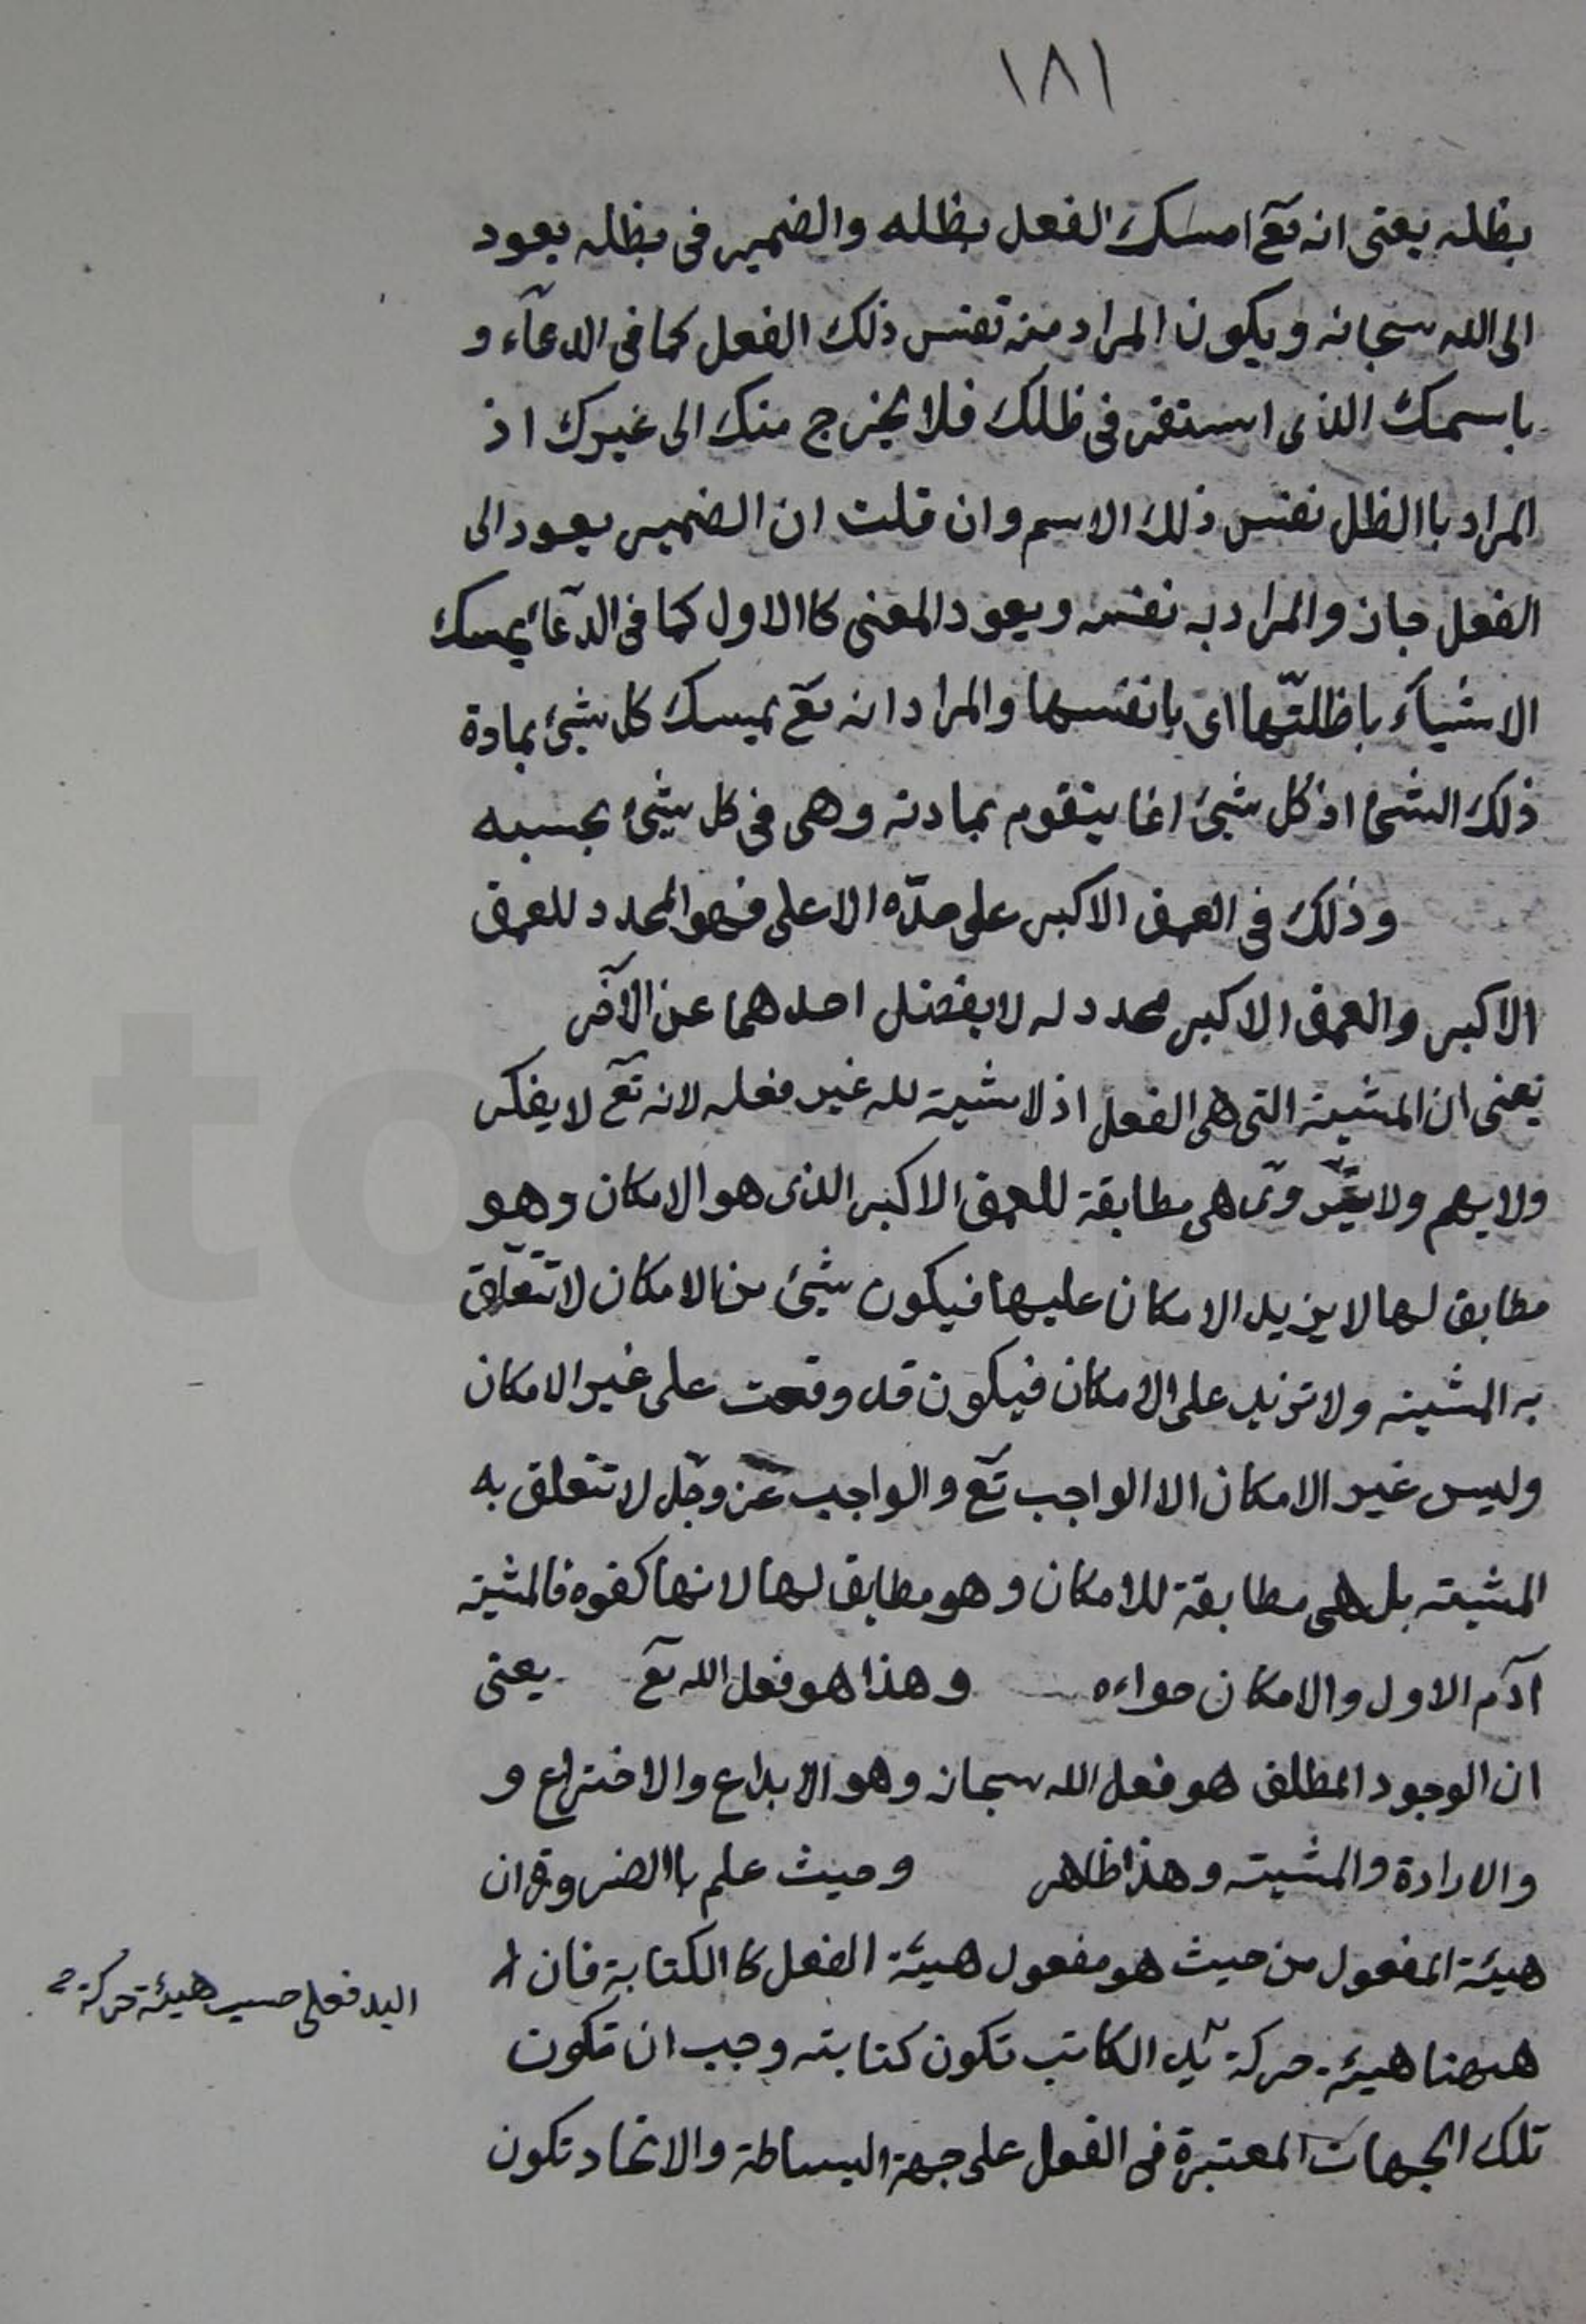 ١٨١
بظله يعنى انه تع امسك الفعل بظله والضمير فى بظله يعود
الى الله سبحانه ويكون المراد منه نفس ذلك الفعل كما فى الدعآء و
باسمك الذى استقر فى ظلك فلا يخرج منك الى غيرك اذ
المراد باالظل نفس ذلك الاسم وان قلت ان الضمير يعود الى
الفعل جاز والمراد به نفسه ويعود المعنى كاالاول كما فى الدّعآء يمسك
الاشيآء باظلتّها اى بانفسها والمراد انه تع يمسك كل شيئ بمادة
ذلك الشئ اذ كل شيئ انما يتقوم بمادته وهى فى كل شيئ بحسبه
وذلك فى العمق الاكبر على حدّه الاعلى فهو المحدد للعمق
الاكبر والعمق الاكبر محدد له لا يفضل احدهما عن الآخر
يعنى ان المشية التى هى الفعل اذ لا مشية لله غير فعله لانه تع لا يفكر
ولا يهم ولا يروّى هى مطابقة للعمق الاكبر الذى هو الامكان وهو
مطابق لها لا يزيد الامكان عليها فيكون شيئ من الامكان لا تتعلق
به المشية ولا تزيد على الامكان فيكون قد وقعت على غير الامكان
وليس غير الامكان الا الواجب تع والواجب عز وجل لا تتعلق به
المشية بل هى مطابقة للامكان وهو مطابق لها لانها كفوه فالمشية
آدم الاول والامكان حواءه وهذا هو فعل الله تع يعنى
ان الوجود المطلق هو فعل الله سبحانه وهو الابداع والاختراع و
والارادة والمشية وهذا ظاهر وحيث علم باالضرورة ان
هيئة المفعول من حيث هو مفعول هيئة الفعل كاالكتابة فان
اليد فعلى حسب هيئة حركة
ههنا هيئة حركة يد الكاتب تكون كتابته وجب ان تكون
تلك الجهات المعتبرة فى الفعل على جهة البساطة والاتحاد تكون